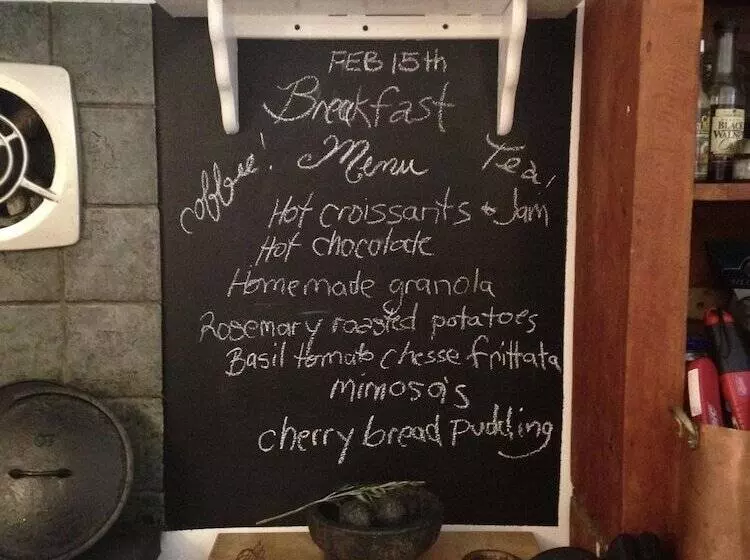 FEB 15th
Breakfast
Menu
coffee!
Tea!
Hot croissants & Jam
Hot chocolate
Homemade granola
Rosemary roasted potatoes
Basil tomato chesse frittata
mimosa's
cherry bread pudding
BLACK
WALNUT